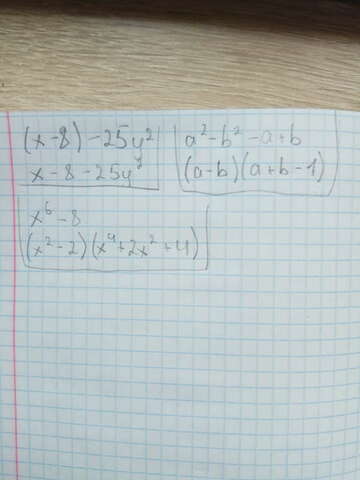 (x-8) - 25y²
x - 8 - 25y²
a² - b² - a + b
(a-b)(a+b-1)
x⁶ - 8
(x² - 2)(x⁴ + 2x² + 4)